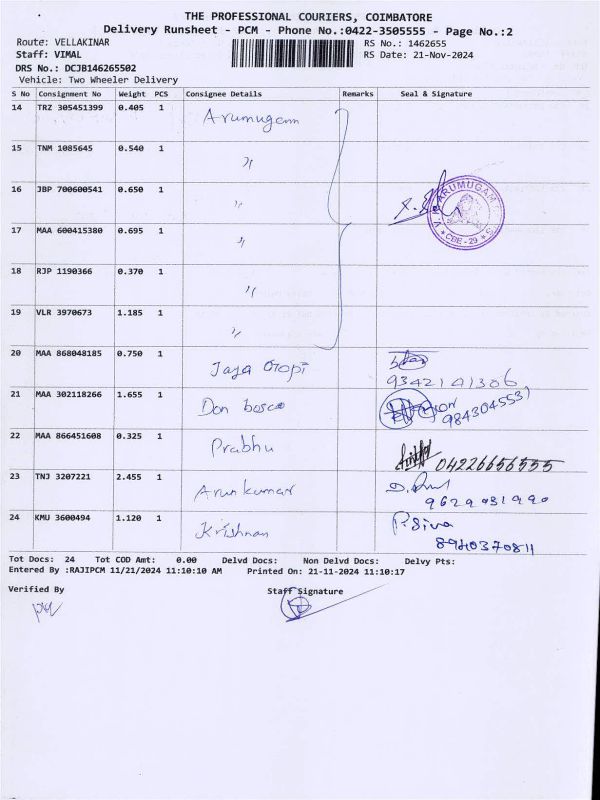 THE PROFESSIONAL COURIERS, COIMBATORE
Delivery Runsheet - PCM - Phone No.:0422-3505555 - Page No.:2
Route: VELLAKINAR RS No.: 1462655
Staff: VIMAL RS Date: 21-Nov-2024
DRS No.: DCJB146265502
Vehicle: Two Wheeler Delivery
S No Consignment No Weight PCS Consignee Details Remarks Seal & Signature
14 TRZ 305451399 0.405 1 Arumugam
15 TNM 1085645 0.540 1 "
16 JBP 700600541 0.650 1 "
V. ARUMUGAM
CBE - 29
17 MAA 600415380 0.695 1 "
18 RJP 1190366 0.370 1 "
19 VLR 3970673 1.185 1 "
20 MAA 868048185 0.750 1 Jaya Gopi
9342141306
21 MAA 302118266 1.655 1 Don bosco
9843045531
22 MAA 866451608 0.325 1 Prabhu
04226656555
23 TNJ 3207221 2.455 1 Arun kumar
9629031990
24 KMU 3600494 1.120 1 Krishnan P. Siva
8940370811
Tot Docs: 24 Tot COD Amt: 0.00 Delvd Docs: Non Delvd Docs: Delvy Pts:
Entered By :RAJIPCM 11/21/2024 11:10:10 AM Printed On: 21-11-2024 11:10:17
Verified By Staff Signature